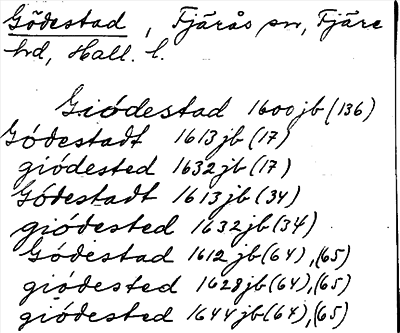 Gödestad, Fjärås sn, Fjäre
hd, Hall. l.
Giódestad 1600 jb (136)
Gódestadt 1613 jb (17)
giódested 1632 jb (17)
Gódestadt 1613 jb (34)
giódested 1632 jb (34)
Gódestad 1612 jb (64), (65)
giódested 1628 jb (64), (65)
giódested 1644 jb (64), (65)